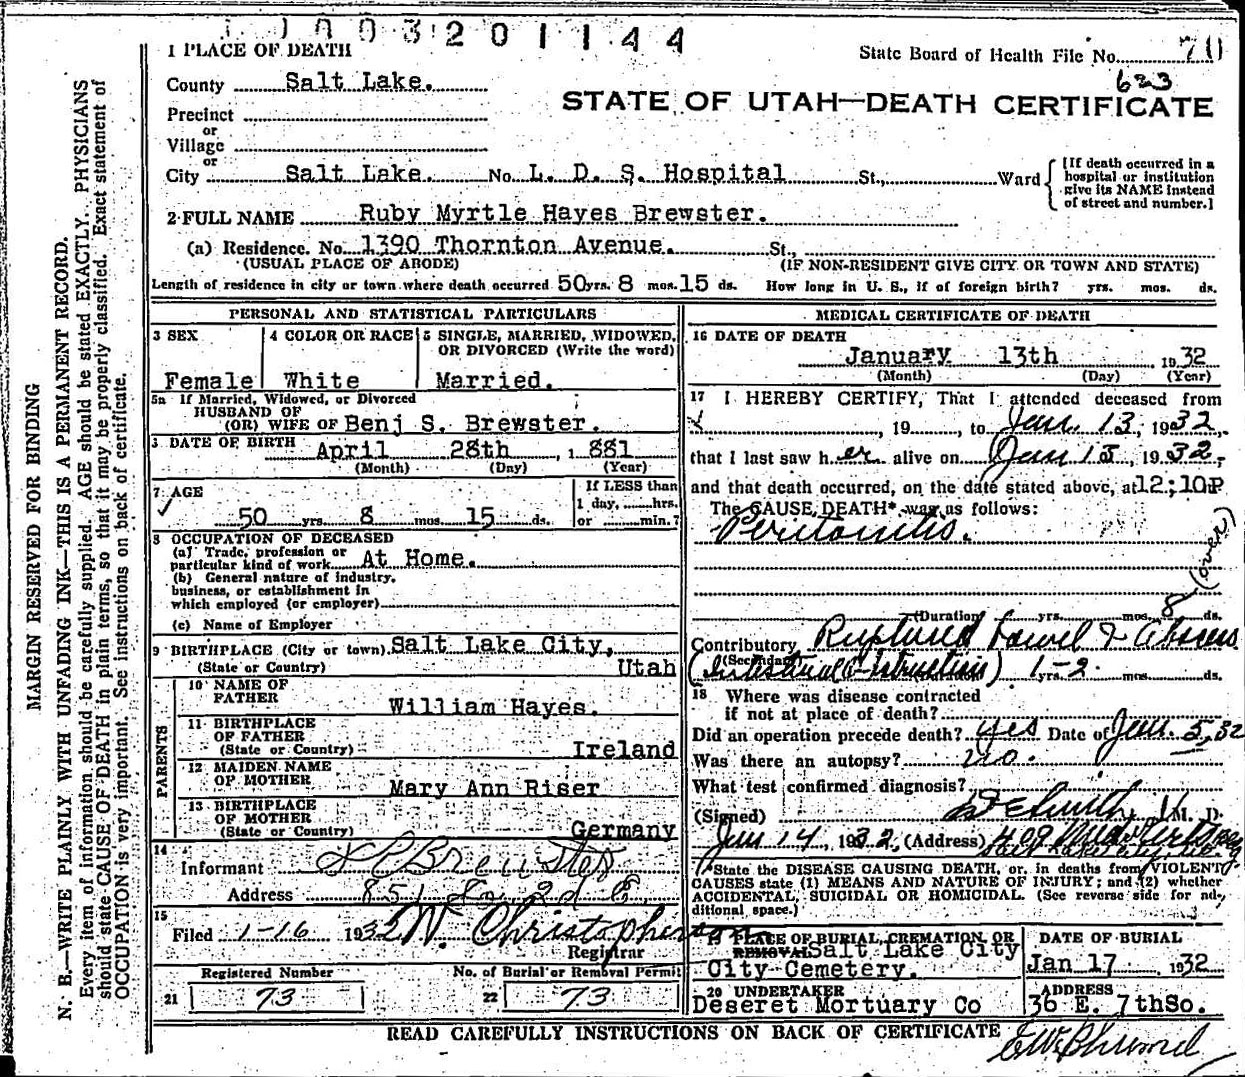 1003201144
1 PLACE OF DEATH
State Board of Health File No. 70
623
County Salt Lake.
STATE OF UTAH—DEATH CERTIFICATE
Precinct
or
Village
or
City Salt Lake. No. L. D. S. Hospital St., Ward
[If death occurred in a hospital or institution give its NAME instead of street and number.]
2 FULL NAME Ruby Myrtle Hayes Brewster.
(a) Residence. No. 1390 Thornton Avenue. St.,
(USUAL PLACE OF ABODE) (IF NON-RESIDENT GIVE CITY OR TOWN AND STATE)
Length of residence in city or town where death occurred 50 yrs. 8 mos. 15 ds. How long in U. S., if of foreign birth? yrs. mos. ds.
PERSONAL AND STATISTICAL PARTICULARS
3 SEX Female
4 COLOR OR RACE White
5 SINGLE, MARRIED, WIDOWED, OR DIVORCED (Write the word) Married.
5a If Married, Widowed, or Divorced
HUSBAND OF
(OR) WIFE OF Benj S. Brewster.
DATE OF BIRTH April 28th, 1881
(Month) (Day) (Year)
7 AGE 50 yrs. 8 mos. 15 ds.
If LESS than 1 day, hrs. or min.?
8 OCCUPATION OF DECEASED
(a) Trade, profession or particular kind of work At Home.
(b) General nature of industry, business, or establishment in which employed (or employer)
(c) Name of Employer
9 BIRTHPLACE (City or town) Salt Lake City,
(State or Country) Utah
PARENTS
10 NAME OF FATHER William Hayes.
11 BIRTHPLACE OF FATHER (State or Country) Ireland
12 MAIDEN NAME OF MOTHER Mary Ann Riser
13 BIRTHPLACE OF MOTHER (State or Country) Germany
14 Informant Brewster
Address 851 So. 2d E.
15 Filed 1-16 1932 W. Christopherson
Registrar
Registered Number
21 73
No. of Burial or Removal Permit
22 73
MEDICAL CERTIFICATE OF DEATH
16 DATE OF DEATH
January 13th 1932
(Month) (Day) (Year)
17 I HEREBY CERTIFY, That I attended deceased from
, 19 , to Jan. 13, 1932,
that I last saw her alive on Jan 13, 1932,
and that death occurred, on the date stated above, at 12:10P
The CAUSE DEATH* was as follows:
Peritonitis.
(over)
(Duration) yrs. mos. 8 ds.
Contributory Ruptured bowel & Abscess
(Secondary)
(Intestinal Obstruction) 1-2 yrs. mos. ds.
18 Where was disease contracted
if not at place of death?
Did an operation precede death? yes Date of Jan. 5, 32
Was there an autopsy? no.
What test confirmed diagnosis?
(Signed) Smith M. D.
Jan 14, 1932. (Address) 409
*State the DISEASE CAUSING DEATH, or, in deaths from VIOLENT
CAUSES state (1) MEANS AND NATURE OF INJURY; and (2) whether
ACCIDENTAL, SUICIDAL OR HOMICIDAL. (See reverse side for additional space.)
19 PLACE OF BURIAL, CREMATION, OR REMOVAL Salt Lake City
City Cemetery.
DATE OF BURIAL
Jan 17 1932
20 UNDERTAKER
Deseret Mortuary Co
ADDRESS
36 E. 7thSo.
READ CAREFULLY INSTRUCTIONS ON BACK OF CERTIFICATE
MARGIN RESERVED FOR BINDING
N. B.—WRITE PLAINLY WITH UNFADING INK—THIS IS A PERMANENT RECORD.
Every item of information should be carefully supplied. AGE should be stated EXACTLY. PHYSICIANS
should state CAUSE OF DEATH in plain terms, so that it may be properly classified. Exact statement of
OCCUPATION is very important. See instructions on back of certificate.